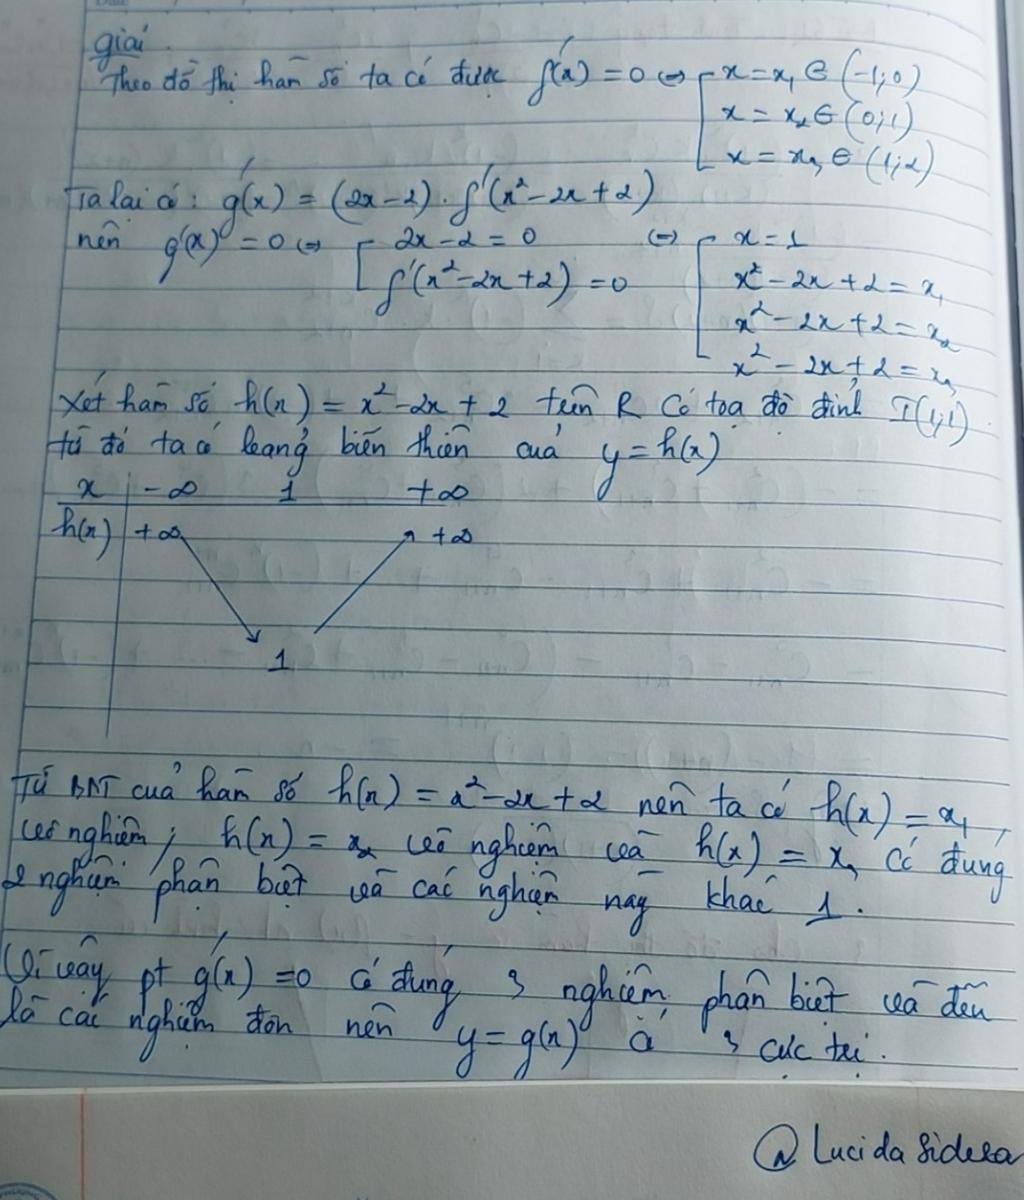 giải
Theo đồ thị hàm số ta có được f'(x) = 0 ⇔ [ x = x₁ ∈ (-1;0)
x = x₂ ∈ (0;1)
x = x₃ ∈ (1;2)
Ta lại có: g'(x) = (2x-2). f'(x²-2x+2)
nên g'(x) = 0 ⇔ [ 2x-2 = 0 ⇔ [ x = 1
f'(x²-2x+2) = 0 x² - 2x + 2 = x₁
x² - 2x + 2 = x₂
x² - 2x + 2 = x₃
Xét hàm số h(x) = x² - 2x + 2 trên R có toạ độ đỉnh I(1;1)
từ đó ta có bảng biến thiên của y = h(x)
x -∞ 1 +∞
h(x) +∞ +∞
1
Từ BBT của hàm số h(x) = x²-2x+2 nên ta có h(x) = x₁,
vô nghiệm; h(x) = x₂ vô nghiệm và h(x) = x₃ có đúng
2 nghiệm phận biệt và các nghiệm này khác 1.
Vì vậy pt g'(x) = 0 có đúng 3 nghiệm phân biệt và đều
là các nghiệm đơn nên y = g(x) có 3 cực trị.
@Lucida Sidera